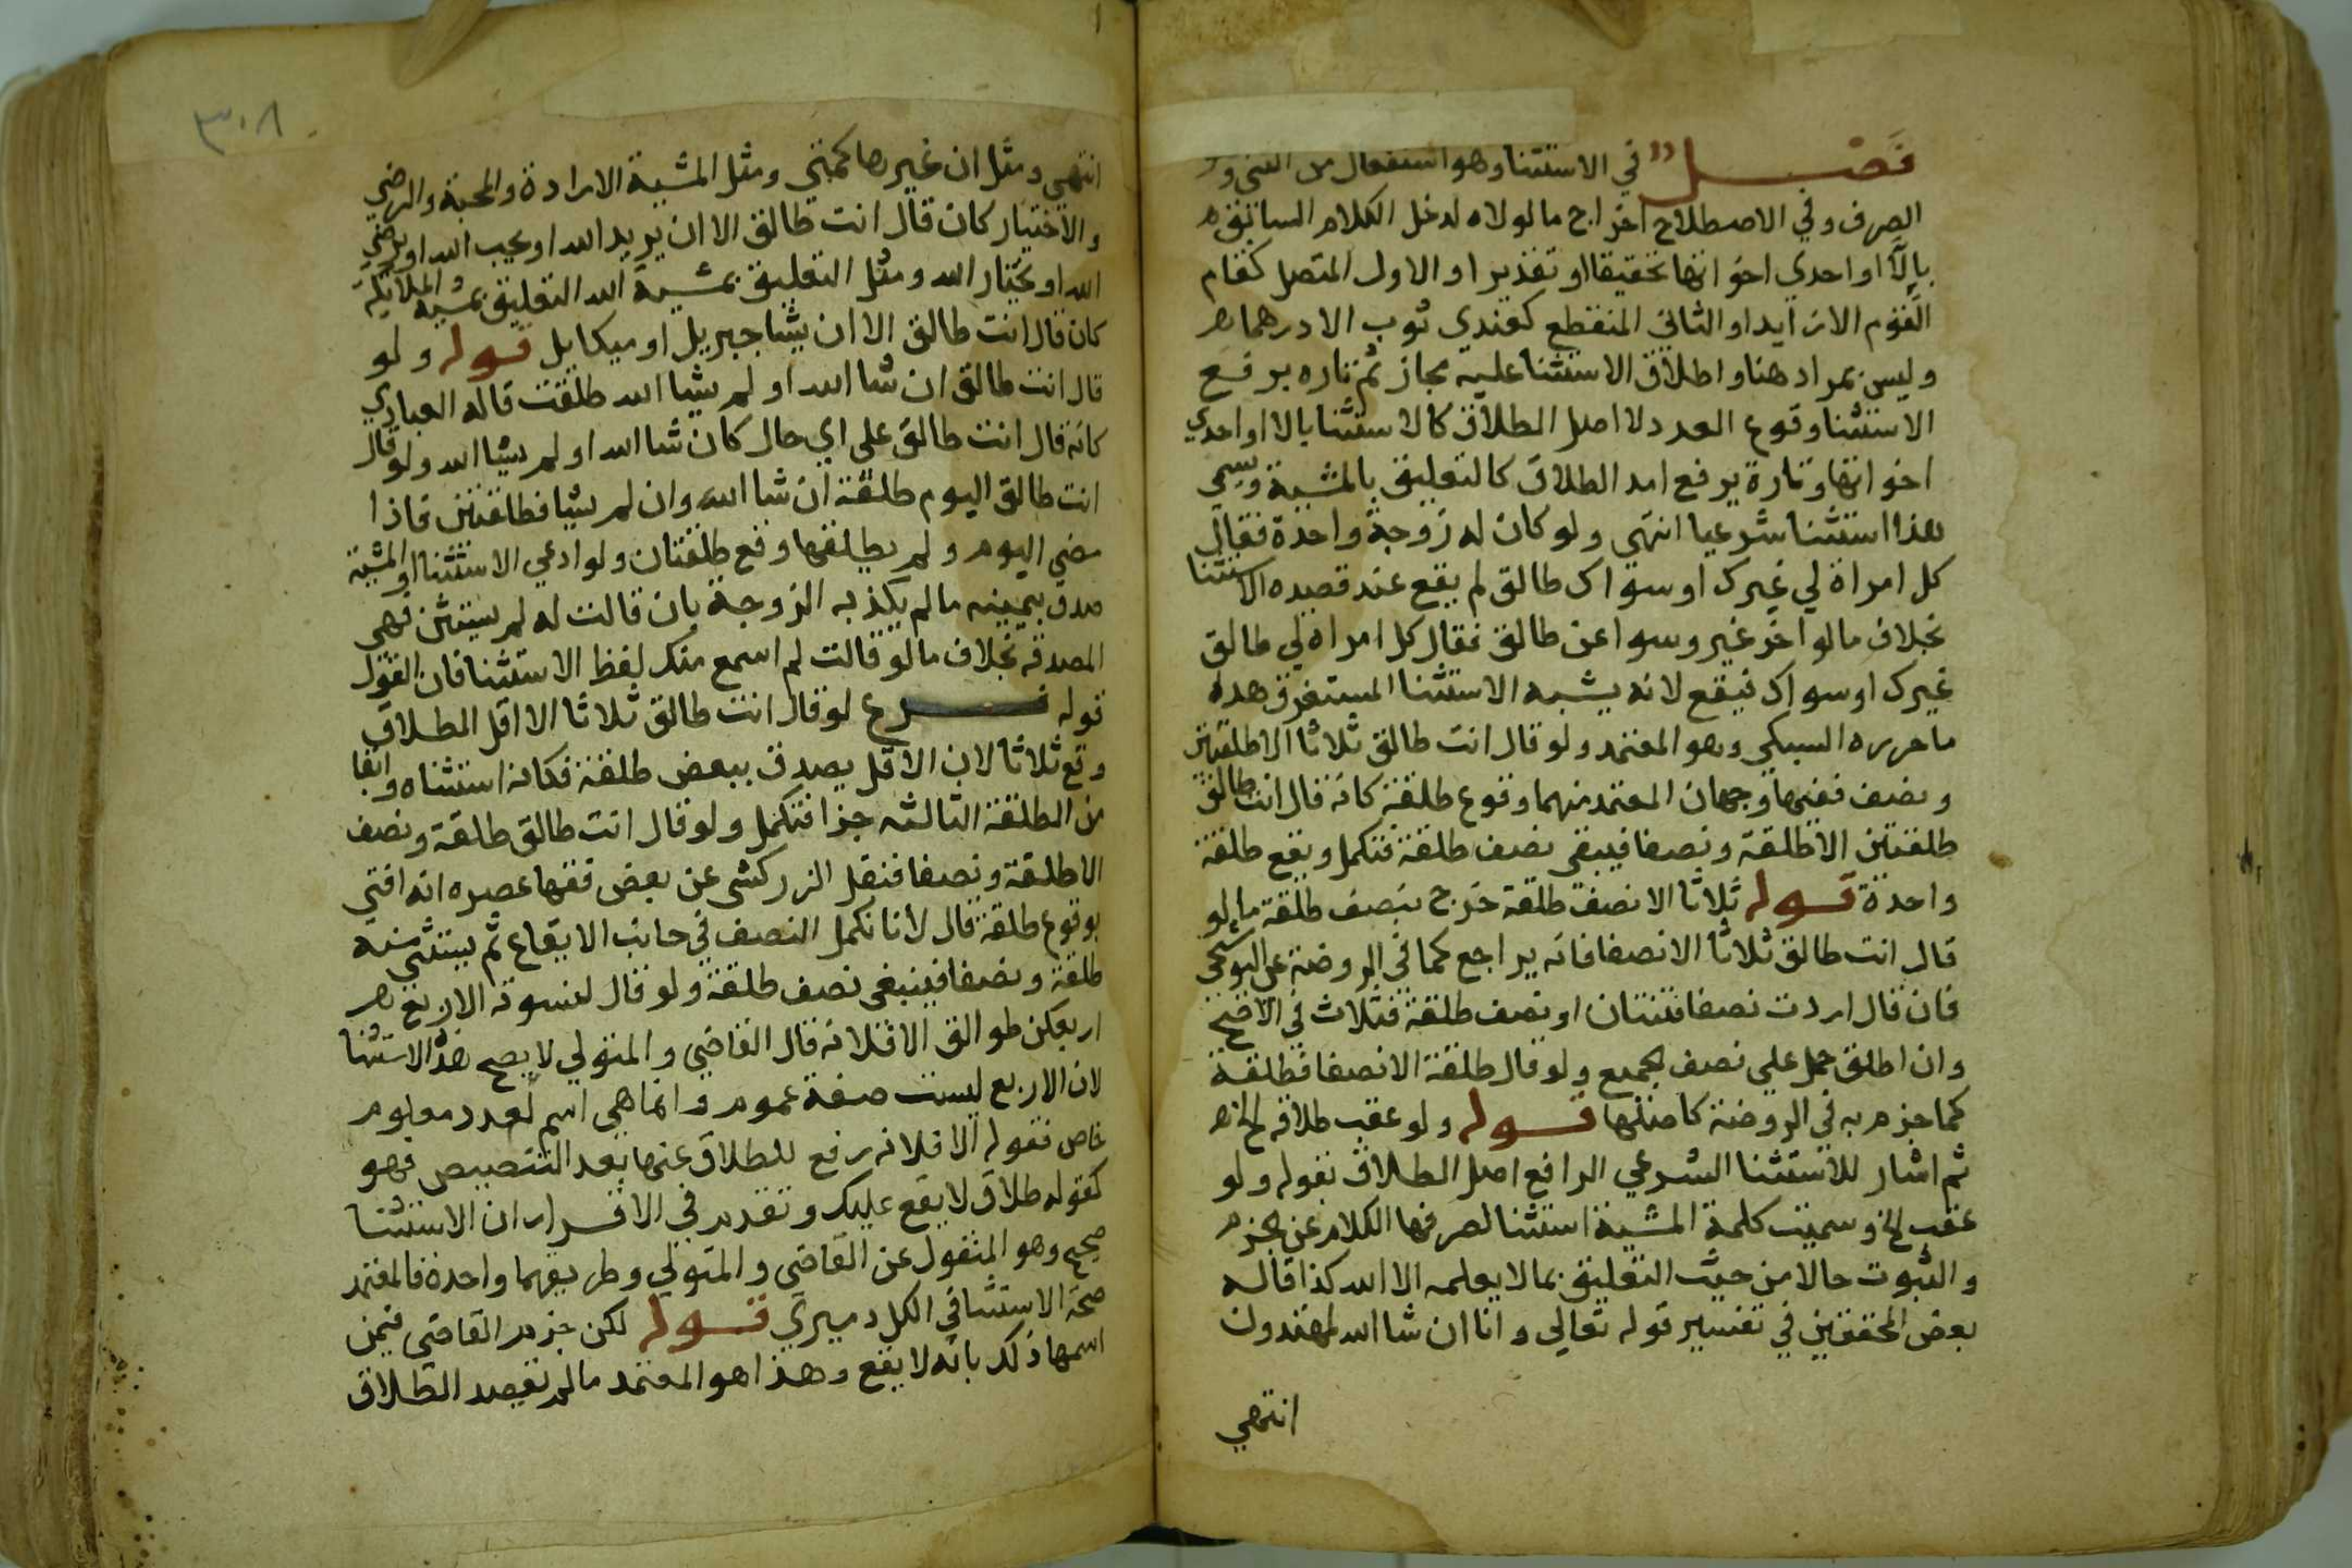 فصل في الاستثنا وهو استفعال من الثني و
الصرف وفي الاصطلاح اخراج ما لولاه لدخل الكلام السابق م
بالا او احدي اخواتها تحقيقا او تقديرا والاول المتصل كقام
القوم الا زيدا والثاني المنقطع كعندي ثوب الا درهما م
وليس بمراد هنا واطلاق الاستثنا عليه مجاز ثم تاره يرفع
الاستثنا وقوع العدد لا اصل الطلاق كالاستثنا بالا او احدي
اخواتها وتارة يرفع اصد الطلاق كالتعليق بالمشية ويسمي
هذا استثنا شرعيا انتهي ولو كان له زوجة واحدة فقال
كل امراة لي غيرك او سواك طالق لم يقع عند قصده الاستثنا
بخلاف ما لو اخر غير وسوا عن طالق فقال كل امراه لي طالق
غيرك او سواك فيقع لانه يشبه الاستثنا المستغرق هده
ما حرره السبكي وهو المعتمد ولو قال انت طالق ثلاثا الا طلقتين
ونصف ففيها وجهان المعتمد منهما وقوع طلقة كانه قال انت طالق
طلقتين الا طلقة ونصفا فيبقي نصف طلقة فتكمل ويقع طلقة
واحدة قوله ثلاثا الا نصف طلقة خرج بنصف طلقة ما لو
قال انت طالق ثلاثا الا نصفا فانه يراجع كما في الروضة عن البوشنجي
فان قال اردت نصفا فثنتان او نصف طلقة فثلاث في الاصح
وان اطلق حمل علي نصف الجميع ولو قال طلقة الا نصفا فطلقة
كما جزم به في الروضة كاصلها قوله ولو عقب طلاقه الخ م
ثم اشار للاستثنا الشرعي الرافع اصل الطلاق بقوله ولو
عقب الخ وسميت كلمة المشية استثنا لصرفها الكلام عن الجزم
والثبوت حالا من حيث التعليق بما لا يعلمه الا الله كذا قاله
بعض المحققين في تفسير قوله تعالي وانا ان شا الله لمهتدون
انتهي
٣٠٨
انتهي ومثل ان غيرها كمتي ومثل المشية الارادة والمحبة والرضي
والاختيار كان قال انت طالق الا ان يريد الله او يحب الله او يرضي
الله او يختار الله ومثل التعليق بمشية الله التعليق بمشية الملايكة
كان قال انت طالق الا ان يشا جبريل او ميكايل قوله ولو
قال انت طالق ان شا الله او لم يشا الله طلقت قاله العبادي
كانه قال انت طالق علي اي حال كان شا الله او لم يشا الله ولو قال
انت طالق اليوم طلقة ان شا الله وان لم يشا فطلقتين فاذا
مضي اليوم ولم يطلقها وقع طلقتان ولو ادعي الاستثنا او المشية
صدق بيمينه ما لم يكذبه الزوجة بان قالت له لم يستثن فهي
المصدقه بخلاف ما لو قالت لم اسمع منك لفظ الاستثنا فان القول
قوله فرع لو قال انت طالق ثلاثا الا اقل الطلاق
وقع ثلاثا لان الاقل يصدق ببعض طلقة فكانه استثناه وابقا
من الطلقة الثالثه جزا فتكمل ولو قال انت طالق طلقة ونصف
الا طلقة ونصفا فنقل الزركشي عن بعض فقها عصره انه افتي
بوقوع طلقة قال لانا نكمل النصف في جانب الايقاع ثم يستثني منه
طلقة ونصفا فينبغي نصف طلقة ولو قال لنسوته الاربع م
اربعكن طوالق الا فلانه قال القاضي والمتولي لا يصح هذا الاستثنا
لان الاربع ليست صفة عموم وانما هي اسم لعدد معلوم
خاص فقوله الا فلانه رفع للطلاق عنها بعد التنصيص فهو
كقوله طلاق لا يقع عليك وتقدم في الاقرار ان الاستثنا
صحيح وهو المنقول عن القاضي والمتولي وطريقهما واحدة فالمعتمد
صحة الاستثنا في الكل دميري قوله لكن جزم القاضي فيمن
اسمها ذلك بانه لا يقع وهذا هو المعتمد ما لم يقصد الطلاق